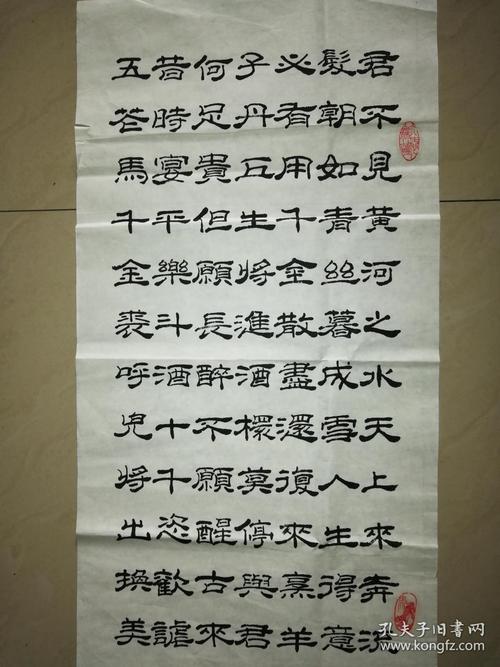 君不見黃河之水天上來奔流
髮朝如青絲暮成雪人生得意
必有用千金散盡還復來烹羊
子丹丘生將進酒莫停與君
何足貴但願長醉不願醒古來
昔時宴平樂斗酒十千恣歡謔
五花馬千金裘呼兒將出換美
孔夫子旧书网
www.kongfz.com